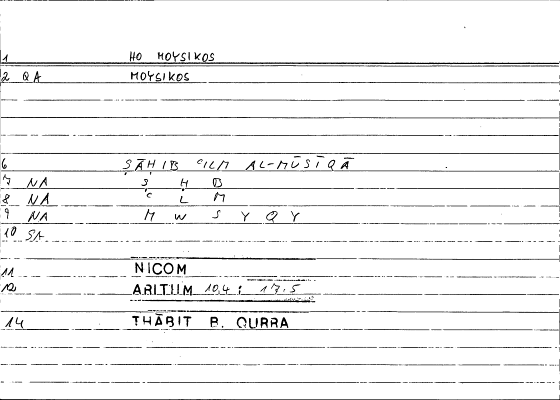 1 HO MOYSIKOS
2 QA MOYSIKOS
6 ṢĀḤIB ʿILM AL-MŪSĪQĀ
7 NA Ṣ Ḥ B
8 NA ʿ L M
9 NA M W S Y Q Y
10 SA
11 NICOM
12 ARITHM 10,4 : 17.5
14 THĀBIT B. QURRA